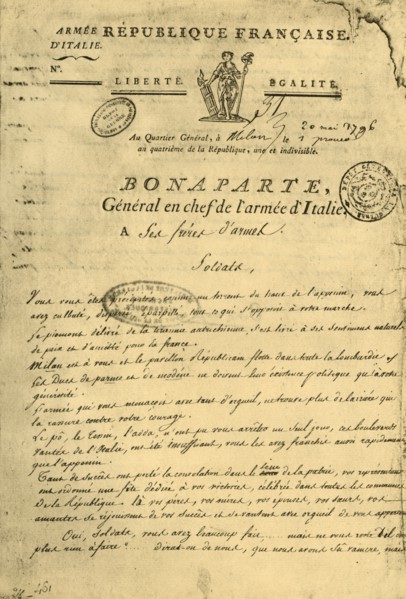 ARMÉE D'ITALIE.
RÉPUBLIQUE FRANÇAISE.
N°.
LIBERTÉ. EGALITÉ.
Au Quartier Général, à Milan le 1 prairial
20 mai 1796
au quatrième de la République, une et indivisible.
BONAPARTE,
Général en chef de l'armée d'Italie,
A Ses frères d'armes.
Soldats,
Vous vous êtes précipités, comme un torrent du haut de l'appenin, vous
avez culbuté, dispersé, éparpillé, tous ce qui s'opposoit à votre marche.
Le piemont délivré de la tirannie autrichienne, s'est livré à ses Sentimens naturels
de paix et d'amitié pour la france.
Milan est à vous et le pavillon Républicain flotte dans toute la lombardie
Les Ducs de parme et de modène ne doivent leur existence politique qu'à votre
générosité.
L'armée qui vous menaçoit avec tant d'orgueil, ne trouve plus de barrière qui
la rassure contre votre courage.
Le pô, le Tesin, l'adda, n'ont pu vous arrêter un Seul jour, ces boulevards
vantés de l'Italie, ont été insuffisant, vous les avez franchis aussi rapidement
que l'appenin.
Tant de Succès ont porté la consolation dans le sein de la patrie, vos représentans
ont ordonné une fête dédiée à vos victoires, célébrée dans toutes les communes
de la République. là vos pères, vos mères, vos épouses, vos sœurs, vos
amantes se réjouissent de vos Succès et se vantent avec orgueil de vous appartenir
Oui, Soldats, vous avez beaucoup fait... mais ne vous reste
plus rien à faire? Dira-t-on de nous, que nous avons Sû vaincre, mais